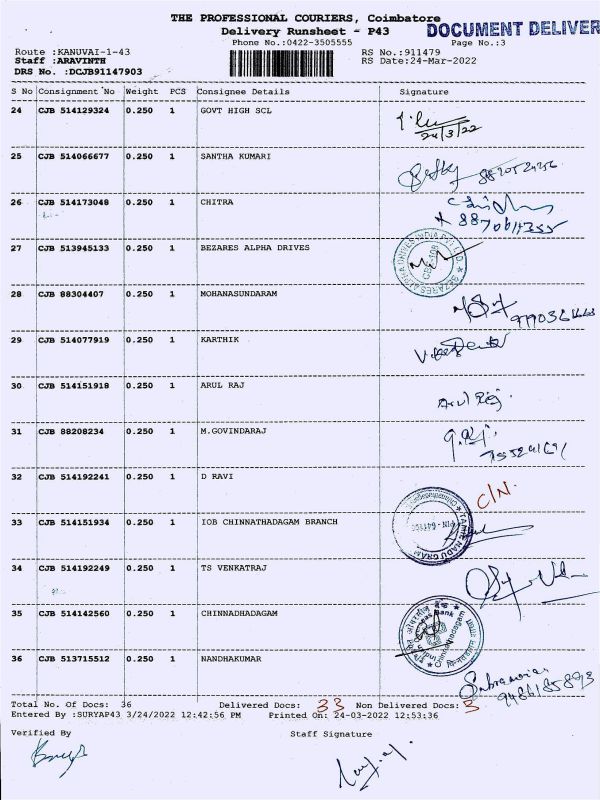 THE PROFESSIONAL COURIERS, Coimbatore
Delivery Runsheet - P43
DOCUMENT DELIVER
Phone No.:0422-3505555
Page No.:3
Route :KANUVAI-1-43
RS No.:911479
Staff :ARAVINTH
RS Date:24-Mar-2022
DRS No. :DCJB91147903
S No Consignment No Weight PCS Consignee Details Signature
24 CJB 514129324 0.250 1 GOVT HIGH SCL
24/3/22
25 CJB 514066677 0.250 1 SANTHA KUMARI
26 CJB 514173048 0.250 1 CHITRA
27 CJB 513945133 0.250 1 BEZARES ALPHA DRIVES
BEZARES ALPHA DRIVES INDIA PVT LTD
28 CJB 88304407 0.250 1 MOHANASUNDARAM
29 CJB 514077919 0.250 1 KARTHIK
30 CJB 514151918 0.250 1 ARUL RAJ
Arul Raj.
31 CJB 88208234 0.250 1 M.GOVINDARAJ
32 CJB 514192241 0.250 1 D RAVI
C/N.
33 CJB 514151934 0.250 1 IOB CHINNATHADAGAM BRANCH
34 CJB 514192249 0.250 1 TS VENKATRAJ
35 CJB 514142560 0.250 1 CHINNADHADAGAM
36 CJB 513715512 0.250 1 NANDHAKUMAR
9486185893
Total No. Of Docs: 36 Delivered Docs: 33 Non Delivered Docs: 3
Entered By :SURYAP43 3/24/2022 12:42:56 PM Printed On: 24-03-2022 12:53:36
Verified By Staff Signature